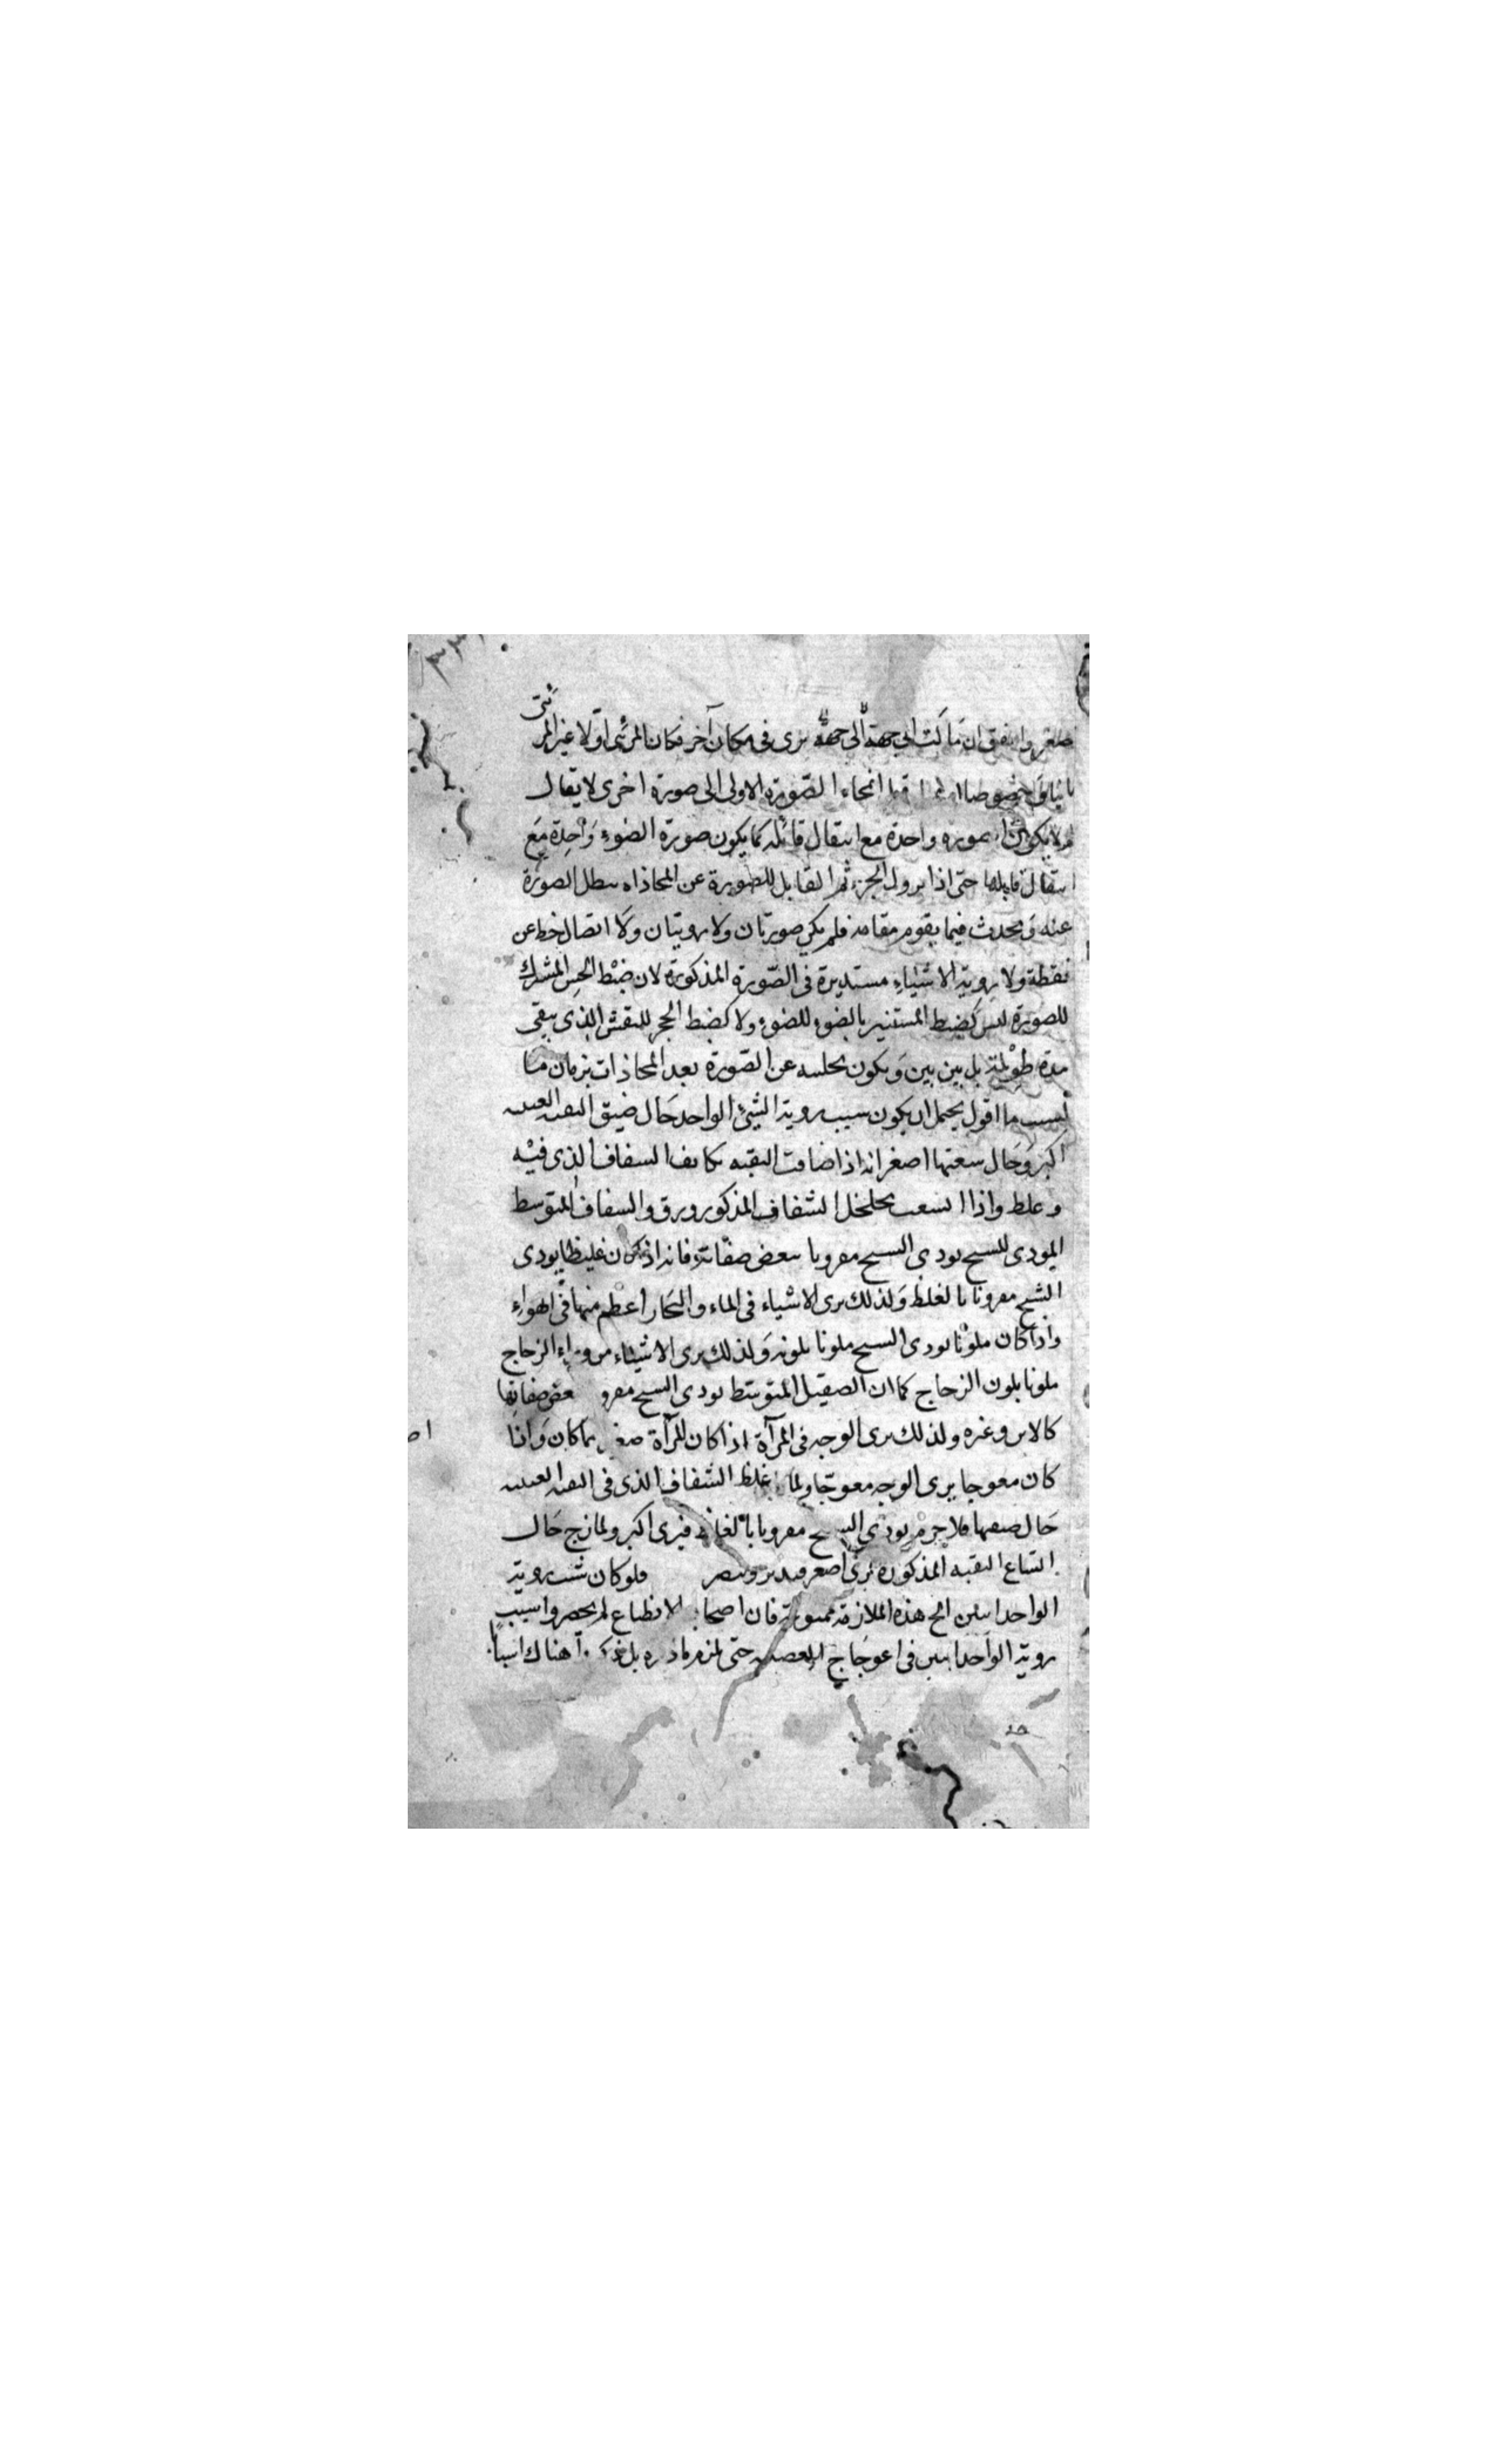 ان مالت الى جهة الى جهة يرى فى مكان آخر فكان المرئى اولا غير المرئى
ثانيا وخصوصا انمحاء الصورة الاولى الى صورة اخرى لا يقال
صورة واحدة مع انتقال قابله كما يكون صورة الضوء واحدة مع
انتقال قابلها حتى اذا يزول الجزء القابل للصورة عن المحاذاه سطل الصورة
عنه ويحدث فيما يقوم مقامه فلم يكن صورتان ولا رويتان ولا اتصال خط عن
نقطة ولا روية الاشياء مستديرة فى الصورة المذكورة لان ضبط الحس المشترك
للصورة ليس كضبط المستنير بالضوء للضوء ولا كضبط الحجر للنقش الذى يبقى
مدة طويلة بل بين بين ويكون تخليه عن الصورة بعد المحاذات بزمان منا
اقول يحتمل ان يكون سبب روية الشئ الواحد حال ضيق الثقبه العنبيه
اكبر وحال سعتها اصغر انه اذا ضاقت الثقبه تكاثف السفاف الذى فيه
وغلظ واذا اتسعت تخلخل الشفاف المذكور ورق والسفاف المتوسط
المودى للشبح يودى الشبح مقرونا ببعض صفاته فانه اذ كان غليظا يودى
الشبح مقرونا بالغلظ ولذلك يرى الاشياء فى الماء والبخار اعظم منها فى الهواء
واذا كان ملونا يودى الشبح ملونا بلونه ولذلك يرى الاشياء من وراء الزجاج
ملونا بلون الزجاج كما ان الصقيل المتوسط يودى الشبح صفاتها
ولذلك يرى الوجه فى المرآة اذا كان المرآة مما كان واذا
كان معوجا يرى الوجه معوجا ولما غلظ الشفاف الذى فى الثقبه العنبيه
حال ضيقها فلا جرم يودى الشبح مقرونا بالغلظ فيرى اكبر ولما رق حال
اتساع الثقبه المذكورة يرى اصغر فلو كان سبب روية
الواحد اثنين الخ هذه الملازمة ممنوعة فان اصحاب الانطباع لم يحصروا سبب
روية الواحد اثنين فى اعوجاج العصبه حتى يلزم ما ذكره بل هناك اسبابا